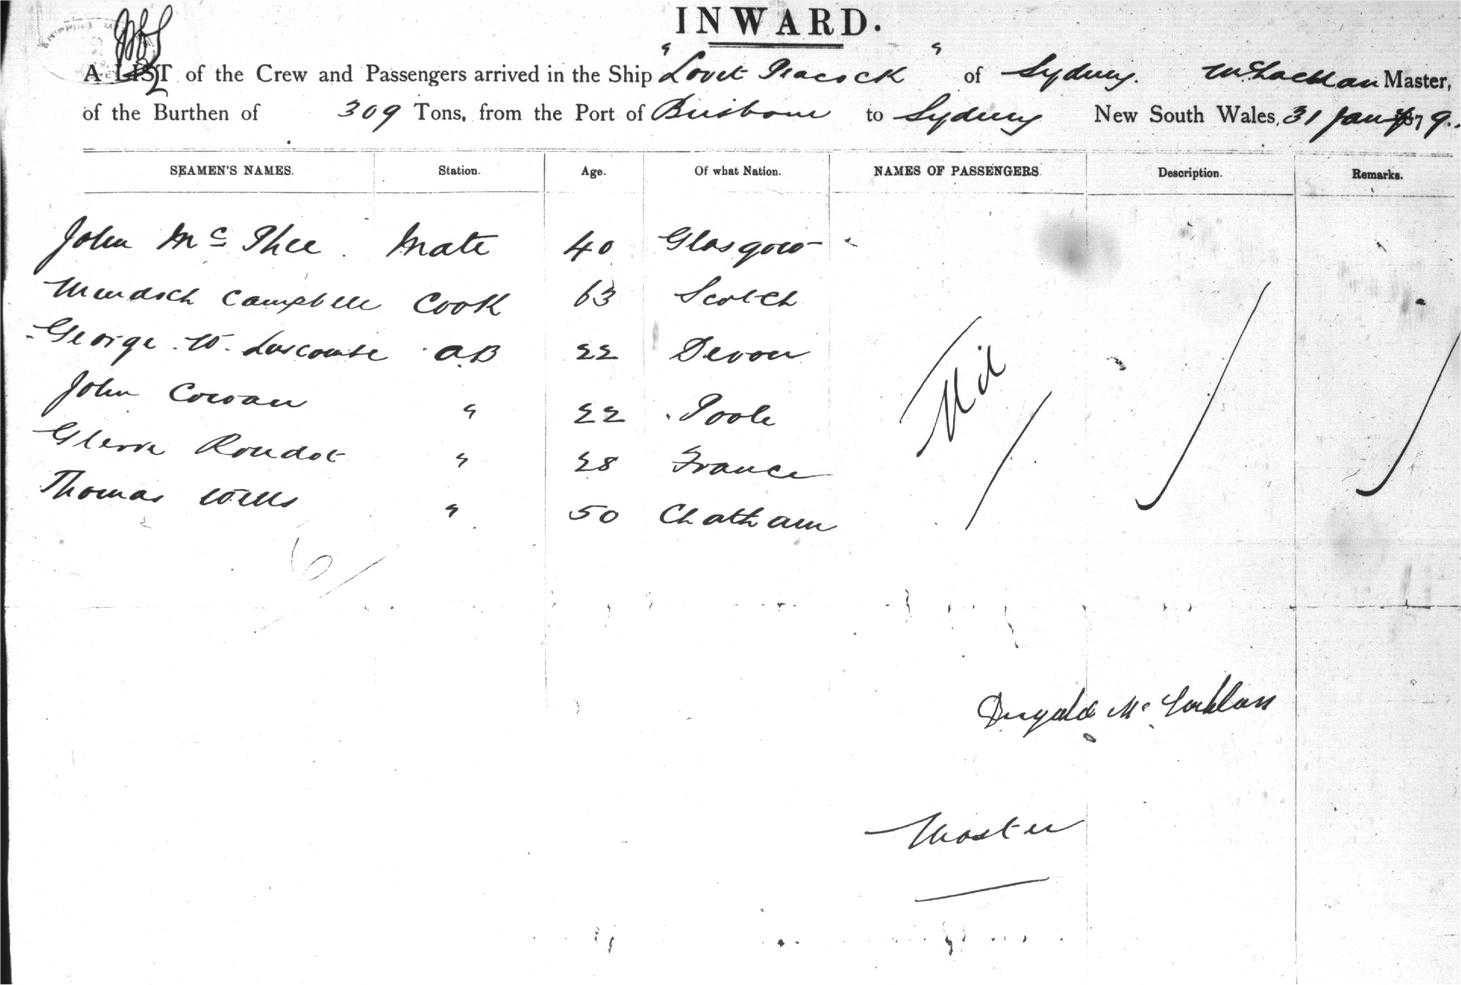 INWARD.
A LIST of the Crew and Passengers arrived in the Ship "Lovet Peacock" of Sydney. McLachlan Master,
of the Burthen of 309 Tons, from the Port of Brisbane to Sydney New South Wales, 31 Jany 1879.
SEAMEN'S NAMES. Station. Age. Of what Nation. NAMES OF PASSENGERS Description. Remarks.
John McPhee. Mate 40 Glasgow
Murdoch Campbell Cook 63 Scotch
George W. Luscombe AB 22 Devon
John Cowan " 22 Poole
Roudot " 28 France
Thomas Wills " 50 Chatham
Nil
6/
Dugald McLachlan
Master